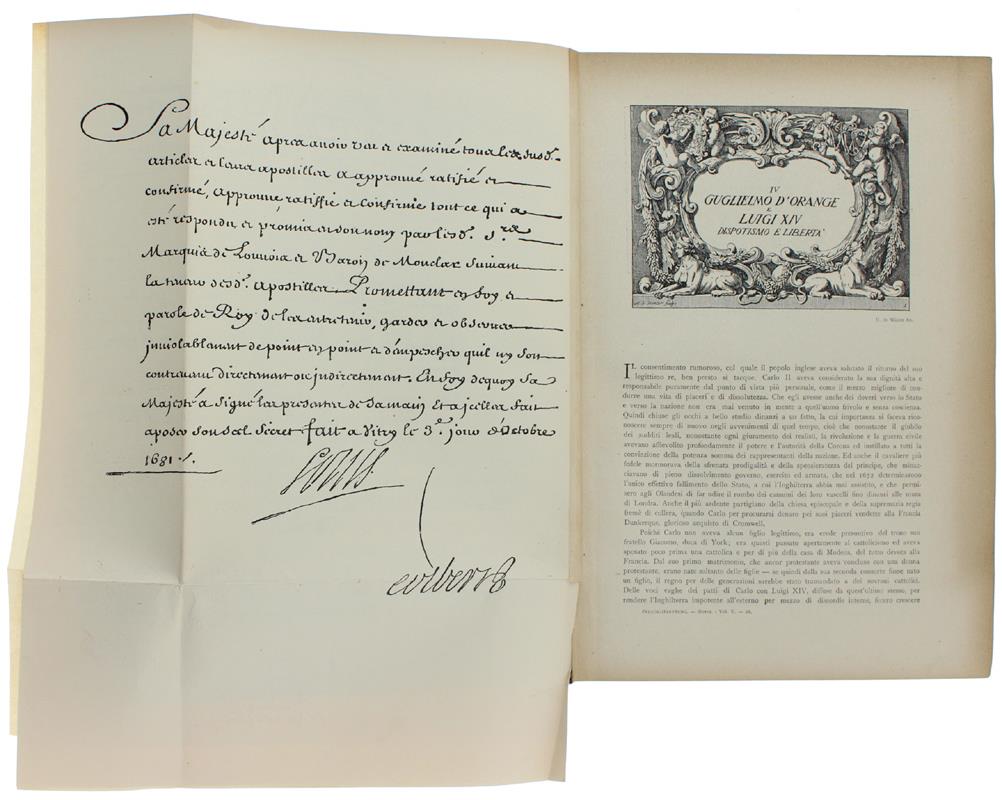 Sa Majesté apres avoir veu et examiné tous les susd.
articles et leurs apostilles a approuvé ratifié et
confirmé, approuve ratiffie et confirme tout ce qui a
esté respondu et promis en son nom par les d. Srs
Marquis de Louvois et Baron de Monclar suivant
la teneur desd. apostilles Promettant en foy et
parole de Roy de les entretenir, garder et observer
inviolablement de point en point et d'empescher quil ny soit
contrevenu directement ou indirectement. En foy dequoy Sa
Majesté a signé les presentes de sa main Et a jcelles fait
aposer son scel secret fait a Vitry le 3e jour d'Octobre
1681 ./.
Louis
Colbert
IV
GUGLIELMO D'ORANGE
E
LUIGI XIV
DISPOTISMO E LIBERTA'
IL consentimento rumoroso, col quale il popolo inglese aveva salutato il ritorno del suo
legittimo re, ben presto si tacque. Carlo II aveva considerato la sua dignità alta e
responsabile puramente dal punto di vista più personale, come il mezzo migliore di con-
durre una vita di piaceri e di dissolutezza. Che egli avesse anche dei doveri verso lo Stato
e verso la nazione non era mai venuto in mente a quell'uomo frivolo e senza coscienza.
Quindi chiuse gli occhi a bello studio dinanzi a un fatto, la cui importanza si faceva rico-
noscere sempre di nuovo negli avvenimenti di quel tempo, cioè che nonostante il giubilo
dei sudditi leali, nonostante ogni giuramento dei realisti, la rivoluzione e la guerra civile
avevano affievolito profondamente il potere e l'autorità della Corona ed instillato a tutti la
convinzione della potenza somma dei rappresentanti della nazione. Ed anche il cavaliere più
fedele mormorava della sfrenata prodigalità e della spensieratezza del principe, che minac-
ciavano di pieno dissolvimento governo, esercito ed armata, che nel 1672 determinarono
l'unico effettivo fallimento dello Stato, a cui l'Inghilterra abbia mai assistito, e che permi-
sero agli Olandesi di far udire il rombo dei cannoni dei loro vascelli fino dinanzi alle mura
di Londra. Anche il più ardente partigiano della chiesa episcopale e della supremazia regia
fremè di collera, quando Carlo per procurarsi denaro pei suoi piaceri vendette alla Francia
Dunkerque, glorioso acquisto di Cromwell.
Poiché Carlo non aveva alcun figlio legittimo, era erede presuntivo del trono suo
fratello Giacomo, duca di York; era questi passato apertamente al cattolicismo ed aveva
sposato poco prima una cattolica e per di più della casa di Modena, del tutto devota alla
Francia. Dal suo primo matrimonio, che ancor protestante aveva concluso con una donna
protestante, erano nate soltanto delle figlie — se quindi dalla sua seconda consorte fosse nato
un figlio, il regno per delle generazioni sarebbe stato tramandato a dei sovrani cattolici.
Delle voci vaghe dei patti di Carlo con Luigi XIV, diffuse da quest'ultimo stesso, per
rendere l'Inghilterra impotente all'esterno per mezzo di discordie interne, fecero crescere